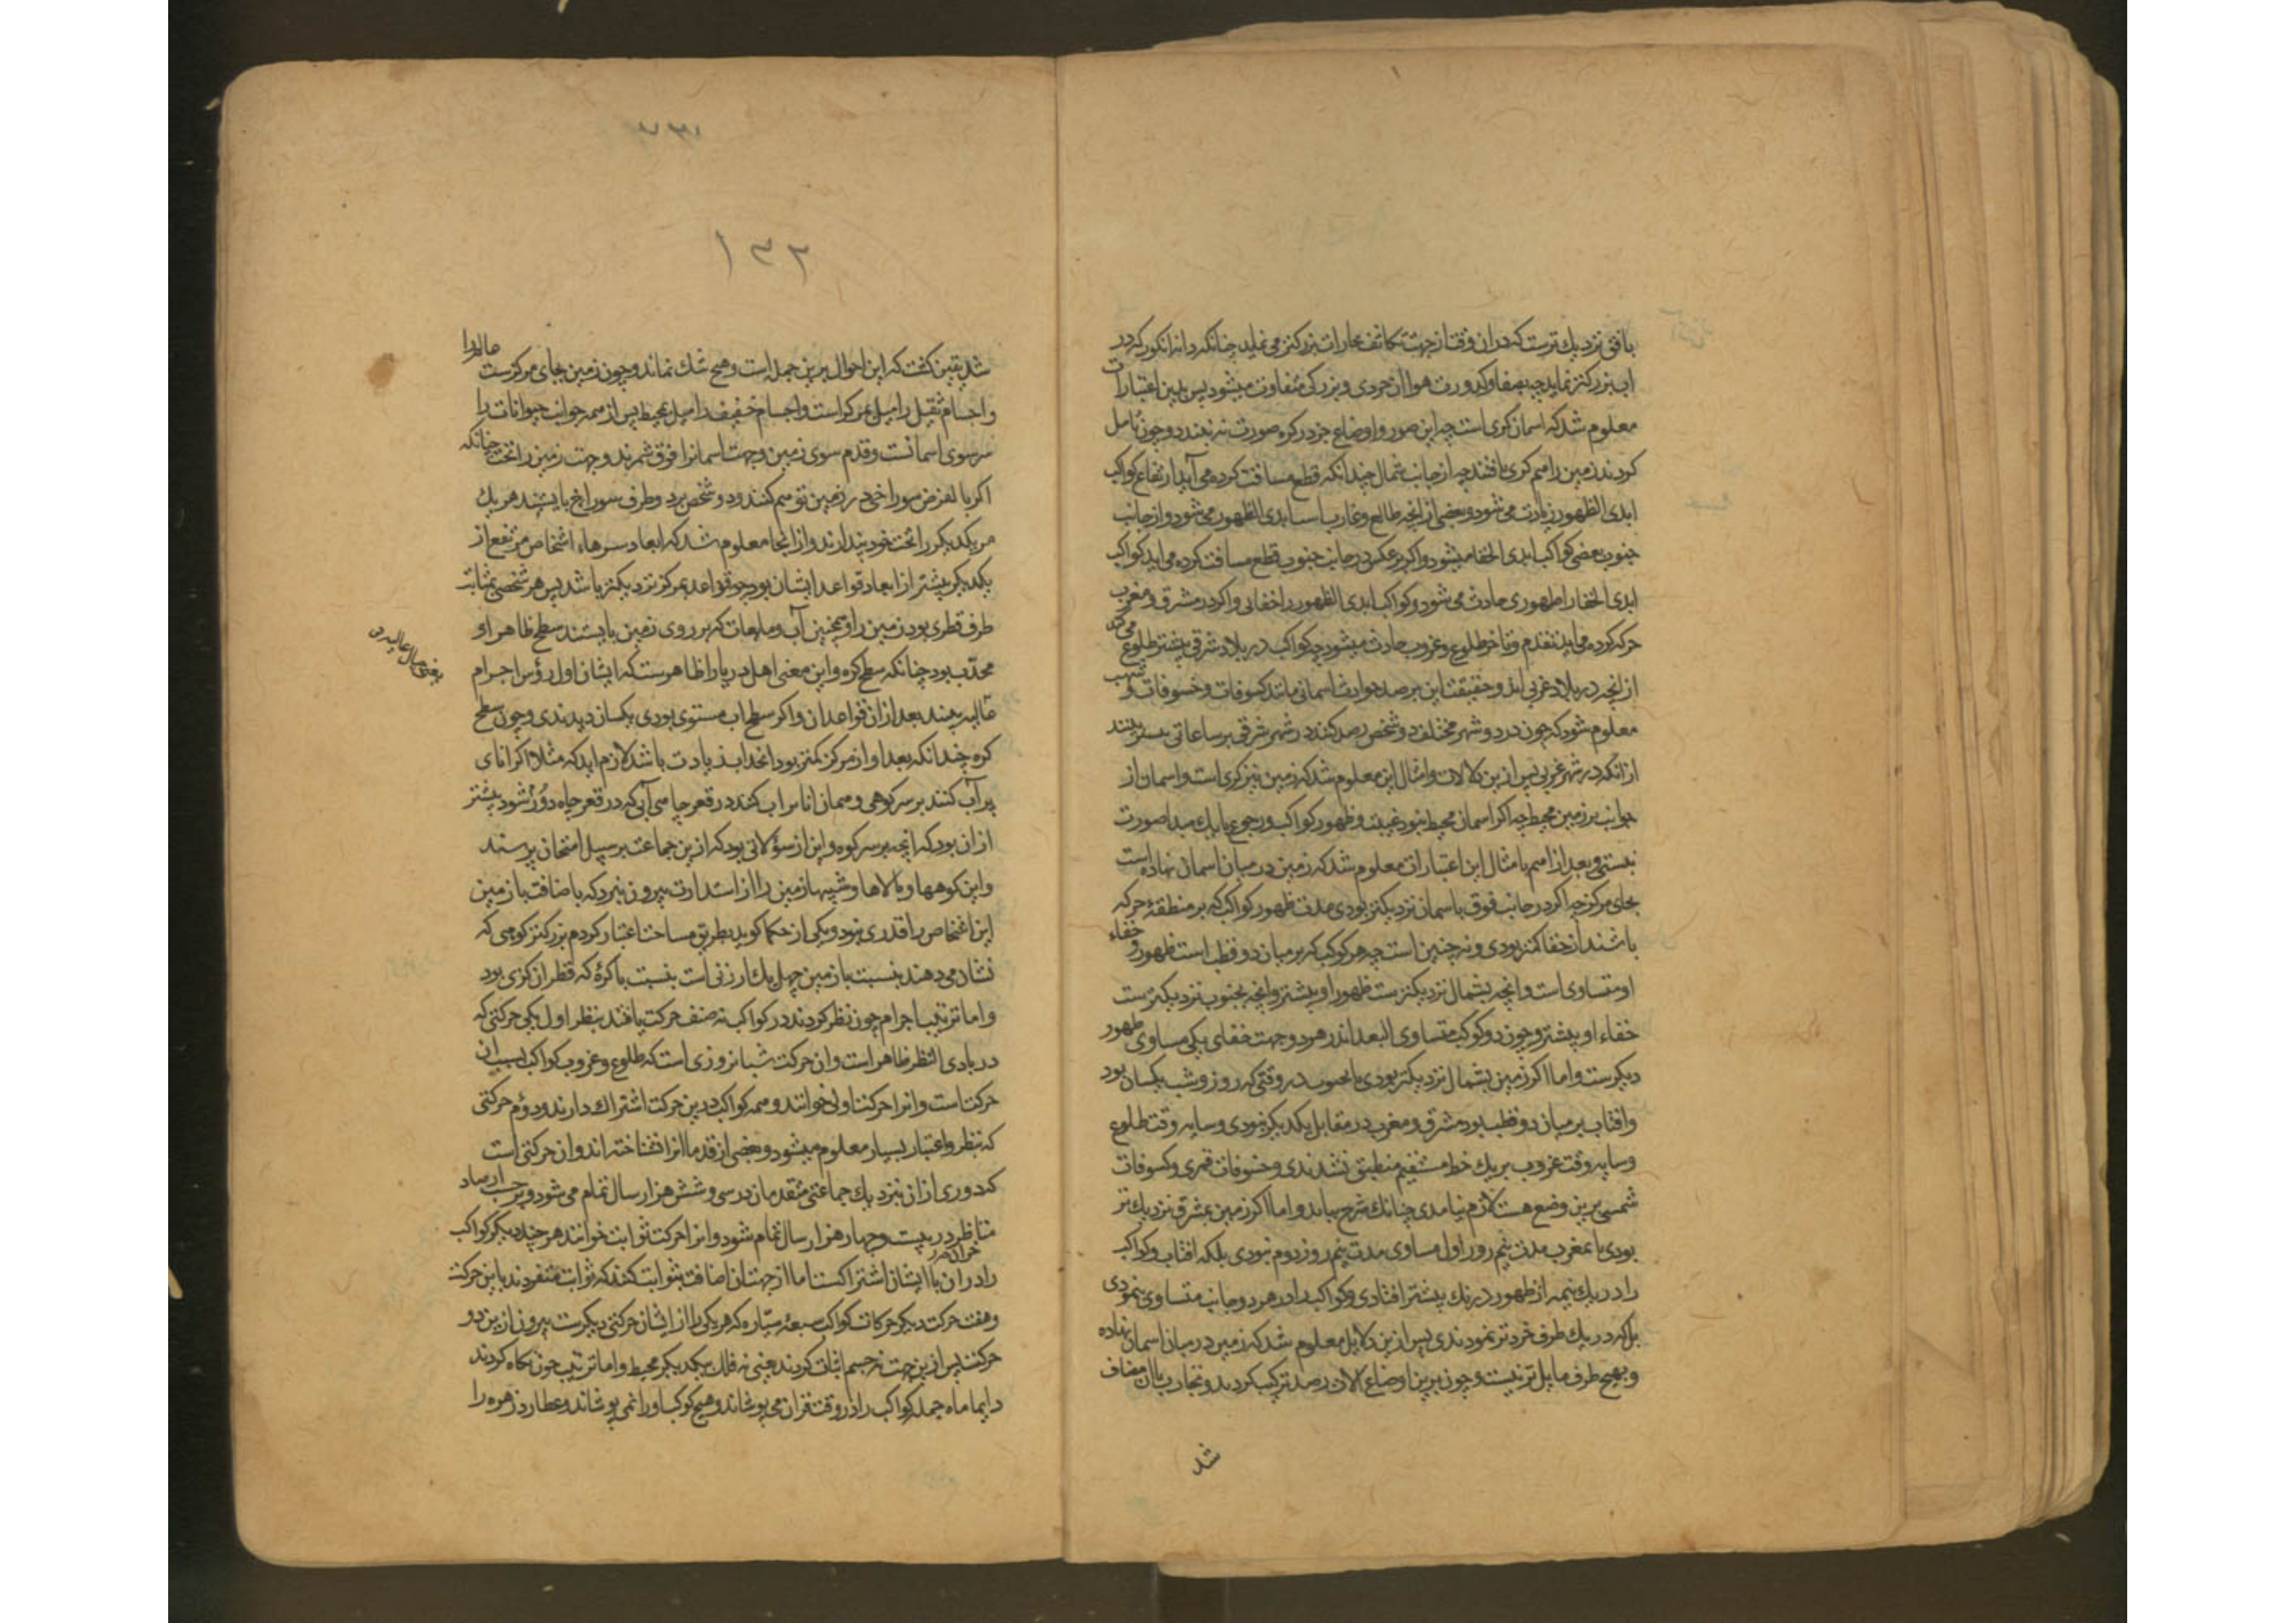 بافق نزدیك ترست که دران وقت از جهت تکاثف بخارات بزرکتر می نماید چنانکه دانه انکور که در
اب بزرکتر نماید چه بصفا و کدورت هوا ان خردی و بزرکی متفاوت میشود پس بدین اعتبارات
معلوم شد که اسمان کری است چه این صور و اوضاع جز در کره صورت نه بندد و چون تامل
کردند زمین را هم کری یافتند چه از جانب شمال چندانکه قطع مسافت کرده می آید ارتفاع کواکب
ابدی الظهور زیادت می شود و بعضی از انچه طالع و غارب است ابدی الظهور می شود و از جانب
جنوب بعضی کواکب ابدی الخفا میشود و اکر بر عکس در جانب جنوب قطع مسافت کرده می اید کواکب
ابدی الخفا را ظهوری حادث می شود و کواکب ابدی الظهور را خفائی و اکر در مشرق و مغرب
حرکه کرده می اید تقدم و تاخر طلوع و غروب حادث میشود چه کواکب در بلاد شرقی پیشتر طلوع می کند
از انچه در بلاد غربی اند و حقیقت این بر صد حوادث اسمانی مانند کسوفات و خسوفات و شهب
معلوم شود که چون در دو شهر مختلف دو شخص رصد کنند در شهر شرقی بر ساعاتی بیشتر بینند
از آنکه در شهر غربی پس ازین دلالات و امثال این معلوم شد که زمین نیز کری است و اسمان از
جوانب بر زمین محیط چه اکر اسمان محیط نبود غیبت و ظهور کواکب و رجوع بایك مبدا صورت
نبستی و بعد از اسم بامثال این اعتبارات معلوم شد که زمین در میان اسمان نهاده است
بجای مرکز چه اکر در جانب فوق باسمان نزدیکتر بودی مدت ظهور کواکب که بر منطقۀ حرکه
باشند از خفا کمتر بودی و نه چنین است چه هر کوکب که بر میان دو قطب است ظهور و خفاء
او متساوی است و انچه بشمال نزدیکترست ظهور او بیشتر و انچه بجنوب نزدیکترست
خفاء او بیشتر و چون دو کوکب متساوی البعد اند در هر دو جهت خفای یکی مساوی ظهور
دیکرست و اما اکر زمین بشمال نزدیکتر بودی یا بجنوب در وقتی که روز و شب یکسان بود
و افتاب بر میان دو قطب بود مشرق و مغرب در مقابل یکدیکر نبودی و سایه وقت طلوع
و سایه وقت غروب بر یك خط مستقیم منطبق نشدندی و خسوفات قمری و کسوفات
شمسی برین وضع هست لازم نیامدی چنانك شرح بیاید و اما اکر زمین بمشرق نزدیك تر
بودی یا بمغرب مدت نیم روز اول مساوی مدت نیم روز دوم نبودی بلکه افتاب و کواکب
را در یك نیمه از ظهور درنك بیشتر افتادی و کواکب را در هر دو جانب متساوی ننمودی
بل که در یك طرف خردتر نمودندی پس ازین دلایل معلوم شد که زمین در میان اسمان نهاده
و بهیچ طرف مایل تر نیست و چون برین اوضاع الات رصد ترکیب کردند و تجارب باان مضاف
شد
۱۳۲
شد یقین کشت که این احوال برین جمله است و هیچ شك نماند و چون زمین بجای مرکزست عالم را
و اجسام ثقیل را میل بمرکز است و اجسام خفیف را میل بمحیط پس از همه جوانب حیوانات را
سر سوی اسمانست و قدم سوی زمین و جهت اسمانرا فوق شمرند و جهت زمین را تحت چنانکه
اکر بالفرض سوراخی در زمین توهم کنند و دو شخص بر دو طرف سوراخ بایستند هر یك
مر یکدیکر را تحت خود پندارند و از انجا معلوم شد که ابعاد سرهاء اشخاص مرتفع از
یکدیکر بیشتر از ابعاد قواعد ایشان بود چه قواعد بمرکز نزدیکتر باشد پس هر شخصی بمثابت
طرف قطری بود زمین را و همچنین آب و مایعات که بر روی زمین بایستند سطح ظاهر او
محدّب بود چنانکه سطح کره و این معنی اهل دریا را ظاهرست که ایشان اول رؤس اجرام
عالیه بینند بعد از ان قواعد ان و اکر سطح اب مستوی بودی یکسان دیدندی و چون سطح
یعنی جبال عالیه
کره چندانکه بعد او از مرکز کمتر بود انحداب زیادت باشد لازم اید که مثلا اکر انای
پر آب کنند بر سر کوهی و همان انا پر اب کنند در قعر چاهی آبی که در قعر چاه دروٓ شود بیشتر
از ان بود که انچه بر سر کوه و این از سؤالاتی بود که ازین جماعت بر سبیل امتحان پرسند
و این کوهها و بالاها و شیبها زمین را از استدارت بیرون نبرد که باضافت بازمین
این اشخاص را قدری نبود و یکی از حکما کوید بطریق مساحت اعتبار کردم بزرکتر کوهی که
نشان می دهند بنسبت بازمین چهل یك ارزنی است بنسبت باکرۀ که قطر ان کزی بود
و اما ترتیب اجرام چون نظر کردند در کواکب نه صنف حرکت یافتند بنظر اول یکی حرکتی که
در بادی النظر ظاهر است و ان حرکت شبانروزی است که طلوع و غروب کواکب بسبب ان
حرکت است و انرا حرکت اولی خوانند و همه کواکب درین حرکت اشتراك دارند و دوُم حرکتی
که بنظر و اعتبار بسیار معلوم میشود و بعضی از قدما انرا نشناخته اند و ان حرکتی است
که دوری از ان نزدیك جماعتی متقدمان در سی و شش هزار سال تمام می شود و بر حسب ارصاد
متاظر در بیست و چهار هزار سال تمام شود و انرا حرکت ثوابت خوانند هر چند دیکر کواکب
را در ان با ایشان اشتراکست اما از جهت ان اضافت بثوابت کنند که ثوابت متفردند باین حرکت
و هفت حرکت دیکر حرکات کواکب سبعۀ سیّاره که هر یکی را از ایشان حرکتی دیکرست بیرون ازین دو
حرکت پس ازین جهت نه جسم اثبات کردند یعنی نه فلك بیکدیکر محیط و اما ترتیب چون نکاه کردند
دایما ماه جمله کواکب را در وقت قران می پوشاند و هیچ کوکب او را نمی پوشاند و عطارد زهره را